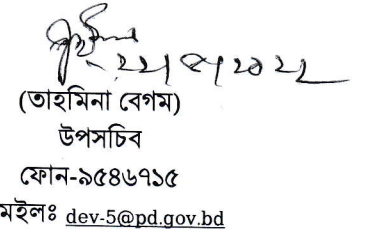 (তাহমিনা বেগম)
উপসচিব
ফোন-৯৫৪৬৭১৫
মইলঃ dev-5@pd.gov.bd